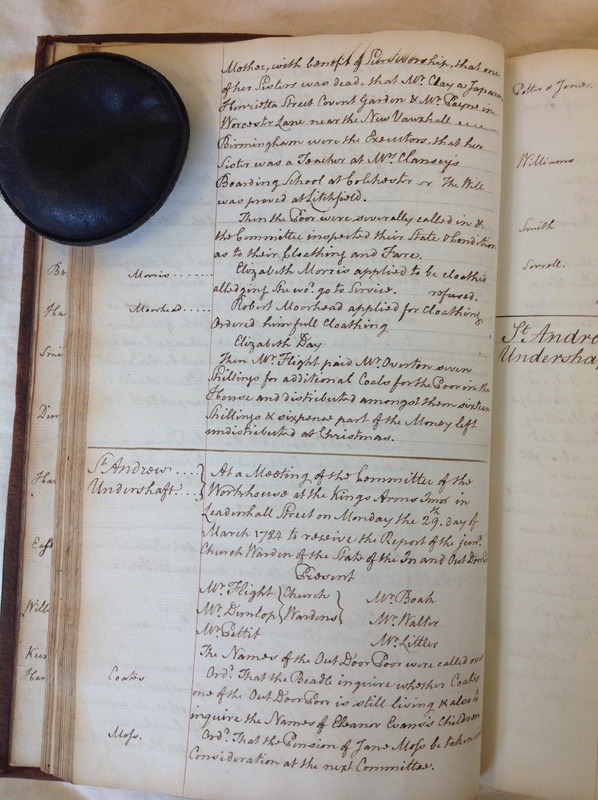 Mother, with benefit of Survivorship, that one
of her Sisters was dead, that Mr. Clay a Japanner
Henrietta Street Covent Garden & Mr. Payne in
Worcestr Lane near the New Vauxhall
Birmingham were the Executors, that her
Sister was a Teacher at Mrs. Clansey's
Boarding School at Colchester or The Will
was proved at Litchfield.
Then the Poor were severally called in &
the Committee inspected their State & Condition
as to their Cloathing and Fare.
Morris....... Elizabeth Morris applied to be cloathed
alledging She wod. go to Service. refused.
Moorhead.... Robert Moorhead applied for Cloathing
Ordered him full Cloathing
Elizabeth Day
Then Mr. Flight paid Mr. Overton seven
Shillings for additional Coals for the Poor in the
House and distributed amongst them sixteen
Shillings & sixpense part of the Money left
undistributed at Christmas.
St. Andrew.... At a Meeting of the Committee of the
Undershaft... Workhouse at the Kings Arms Inn in
Leadenhall Street on Monday the 29th. day of
March 1784 to receive the Report of the junr.
Church Warden of the State of the In and Out Door
Present
Mr. Flight Church Mr. Boak
Mr. Dunlop Wardens Mr. Walter
Mr. Pettit Mr. Littler
The Names of the Out Door Poor were called over
Coates Ord. That the Beadle inquire whether Coates
one of the Out Door Poor is still living & also to
inquire the Names of Eleanor Evans's Children
Moss. Ord. That the Pension of Jane Moss be taken in
Consideration at the next Committee.
Potts & Jones.
Williams
Smith
Sorrell.
St. Andre
Undersha